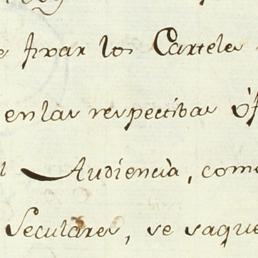 e fixar los Cartele
en las respectibas Of
l Audiencia, come
Seculares, se saque